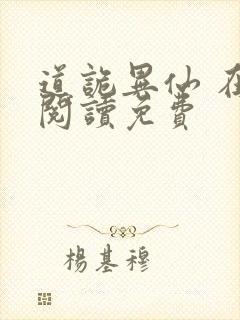 道詭異仙 在
閱讀免費
楊基穆